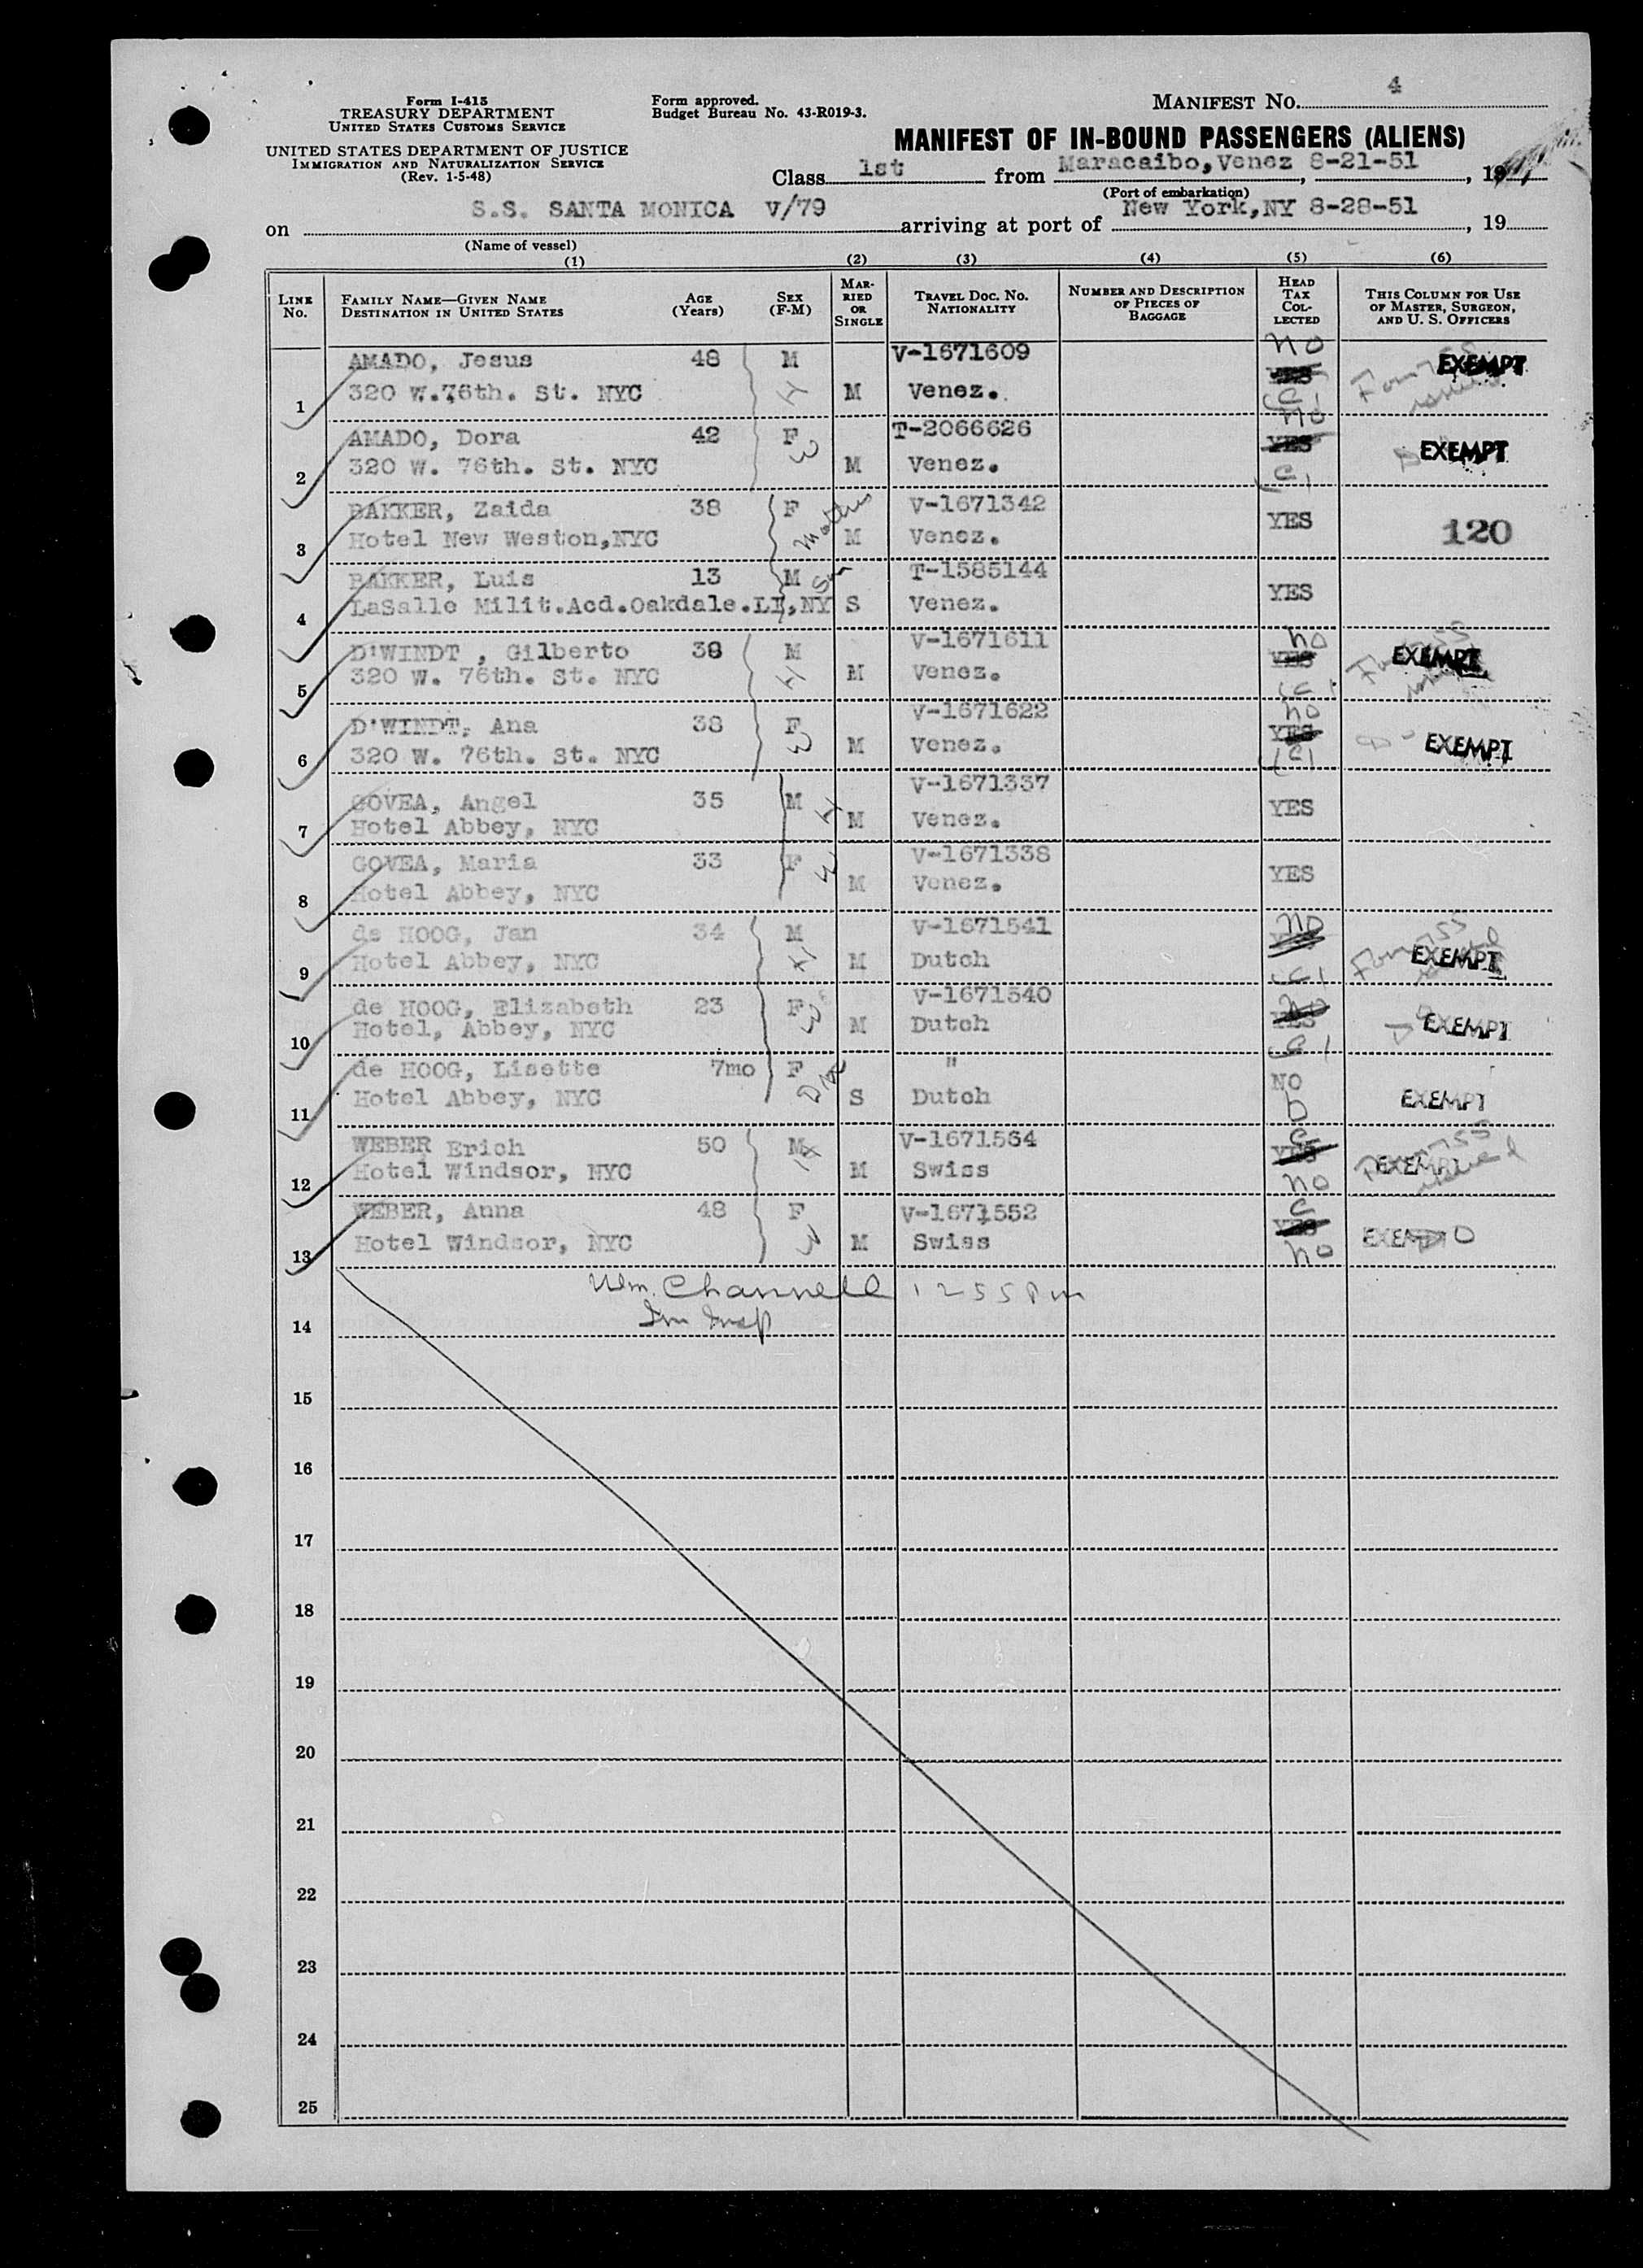 Form I-415
TREASURY DEPARTMENT
UNITED STATES CUSTOMS SERVICE
UNITED STATES DEPARTMENT OF JUSTICE
IMMIGRATION AND NATURALIZATION SERVICE
(Rev. 1-5-48)
Form approved.
Budget Bureau No. 43-R019-3.
MANIFEST NO. 4
MANIFEST OF IN-BOUND PASSENGERS (ALIENS)
Class 1st from Maracaibo, Venez 8-21-51, 19
(Port of embarkation)
on S.S. SANTA MONICA V/79 arriving at port of New York, NY 8-28-51, 19
(Name of vessel)
(1) (2) (3) (4) (5) (6)
LINE No. FAMILY NAME—GIVEN NAME DESTINATION IN UNITED STATES AGE (Years) SEX (F-M) MARRIED OR SINGLE TRAVEL DOC. NO. NATIONALITY NUMBER AND DESCRIPTION OF PIECES OF BAGGAGE HEAD TAX COLLECTED THIS COLUMN FOR USE OF MASTER, SURGEON, AND U. S. OFFICERS
AMADO, Jesus 48 M V-1671609 no EXEMPT
1 320 W.76th. St. NYC H M Venez. YES C1 Form 755 issued
AMADO, Dora 42 F T-2066626 no EXEMPT
2 320 W. 76th. St. NYC W M Venez. YES C1
BAKKER, Zaida 38 F V-1671342 YES 120
3 Hotel New Weston, NYC Mother M Venez.
BAKKER, Luis 13 M T-1585144 YES
4 LaSalle Milit.Acd.Oakdale.LI,NY Son S Venez.
D'WINDT , Gilberto 38 M V-1671611 no EXEMPT
5 320 W. 76th. St. NYC H M Venez. YES C1 Form 755 issued
D'WINDT, Ana 38 F V-1671622 no EXEMPT
6 320 W. 76th. St. NYC W M Venez. YES C1
GOVEA, Angel 35 M V-1671337 YES
7 Hotel Abbey, NYC H M Venez.
GOVEA, Maria 33 F V-1671338 YES
8 Hotel Abbey, NYC W M Venez.
de HOOG, Jan 34 M V-1671541 no Form 755 issued
9 Hotel Abbey, NYC H M Dutch C1 EXEMPT
de HOOG, Elizabeth 23 F V-1671540 no EXEMPT
10 Hotel, Abbey, NYC W M Dutch YES C1
de HOOG, Lisette 7mo F " NO
11 Hotel Abbey, NYC S Dutch D EXEMPT
WEBER Erich 50 M V-1671564 C Form 755 issued
12 Hotel Windsor, NYC H M Swiss YES no EXEMPT
WEBER, Anna 48 F V-1671552 C
13 Hotel Windsor, NYC W M Swiss YES no EXEMPT
Wm. Channell 1255 Pm
14 Im Insp
15
16
17
18
19
20
21
22
23
24
25